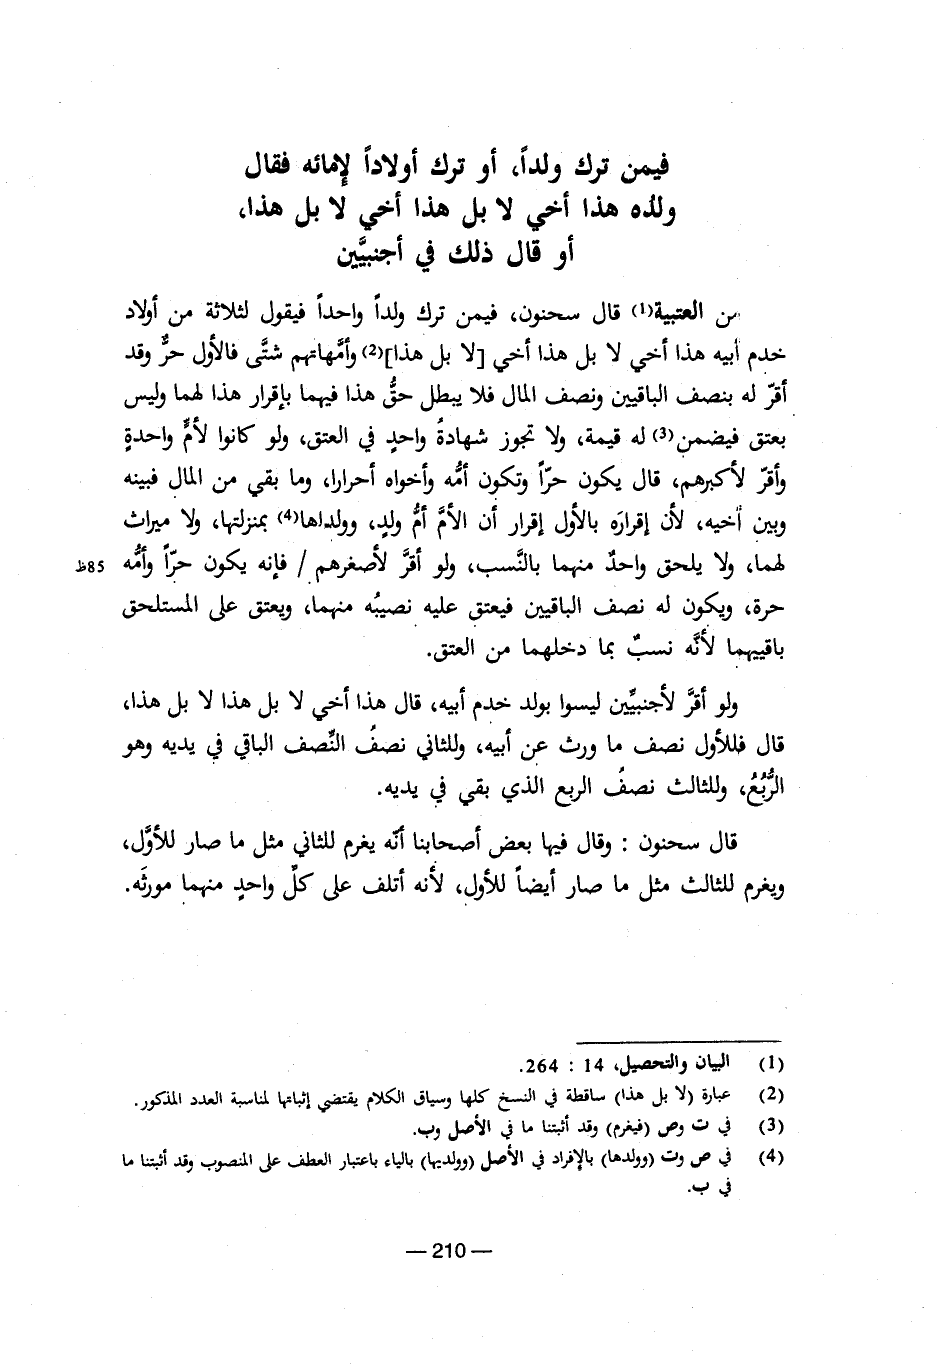 فيمن ترك ولداً، أو ترك أولاداً لإمائه فقال
ولده هذا أخي لا بل هذا أخي لا بل هذا،
أو قال ذلك في أجنبيَّين
من العتبية(1) قال سحنون، فيمن ترك ولداً واحداً فيقول لثلاثة من أولاد
خدم أبيه هذا أخي لا بل هذا أخي [لا بل هذا](2) وأمَّهاتهم شتَّى فالأول حرٌّ وقد
أقرّ له بنصف الباقيين ونصف المال فلا يبطل حقُّ هذا فيهما بإقرار هذا لهما وليس
بعتق فيضمن(3) له قيمة، ولا تجوز شهادةُ واحدٍ في العتق، ولو كانوا لأمٍّ واحدةٍ
وأقرّ لأكبرهم، قال يكون حرّاً وتكون أمُّه وأخواه أحرارا، وما بقي من المال فبينه
وبين أخيه، لأن إقرارَه بالأول إقرار أن الأمَّ أمُّ ولدٍ، وولداها(4) بمنزلتها، ولا ميراث
لهما، ولا يلحق واحدٌ منهما بالنَّسب، ولو أقرَّ لأصغرهم / فإنه يكون حرّاً وأمُّه 85ظ
حرة، ويكون له نصف الباقيين فيعتق عليه نصيبُه منهما، ويعتق على المستلحق
باقييهما لأنَّه نسبٌ بما دخلهما من العتق.
ولو أقرَّ لأجنبيِّين ليسوا بولد خدم أبيه، قال هذا أخي لا بل هذا لا بل هذا،
قال فللأول نصف ما ورث عن أبيه، وللثاني نصفُ النِّصف الباقي في يديه وهو
الرُّبُعُ، وللثالث نصفُ الربع الذي بقي في يديه.
قال سحنون : وقال فيها بعض أصحابنا أنَّه يغرم للثاني مثل ما صار للأوَّل،
ويغرم للثالث مثل ما صار أيضاً للأول، لأنه أتلف على كلِّ واحدٍ منهما مورثَه.
(1) البيان والتحصيل، 14 : 264.
(2) عبارة (لا بل هذا) ساقطة في النسخ كلها وسياق الكلام يقتضي إثباتها لمناسبة العدد المذكور.
(3) في ت وص (فيغرم) وقد أثبتنا ما في الأصل وب.
(4) في ص وت (وولدها) بالإفراد في الأصل (وولديها) بالياء باعتبار العطف على المنصوب وقد أثبتنا ما
في ب.
— 210 —